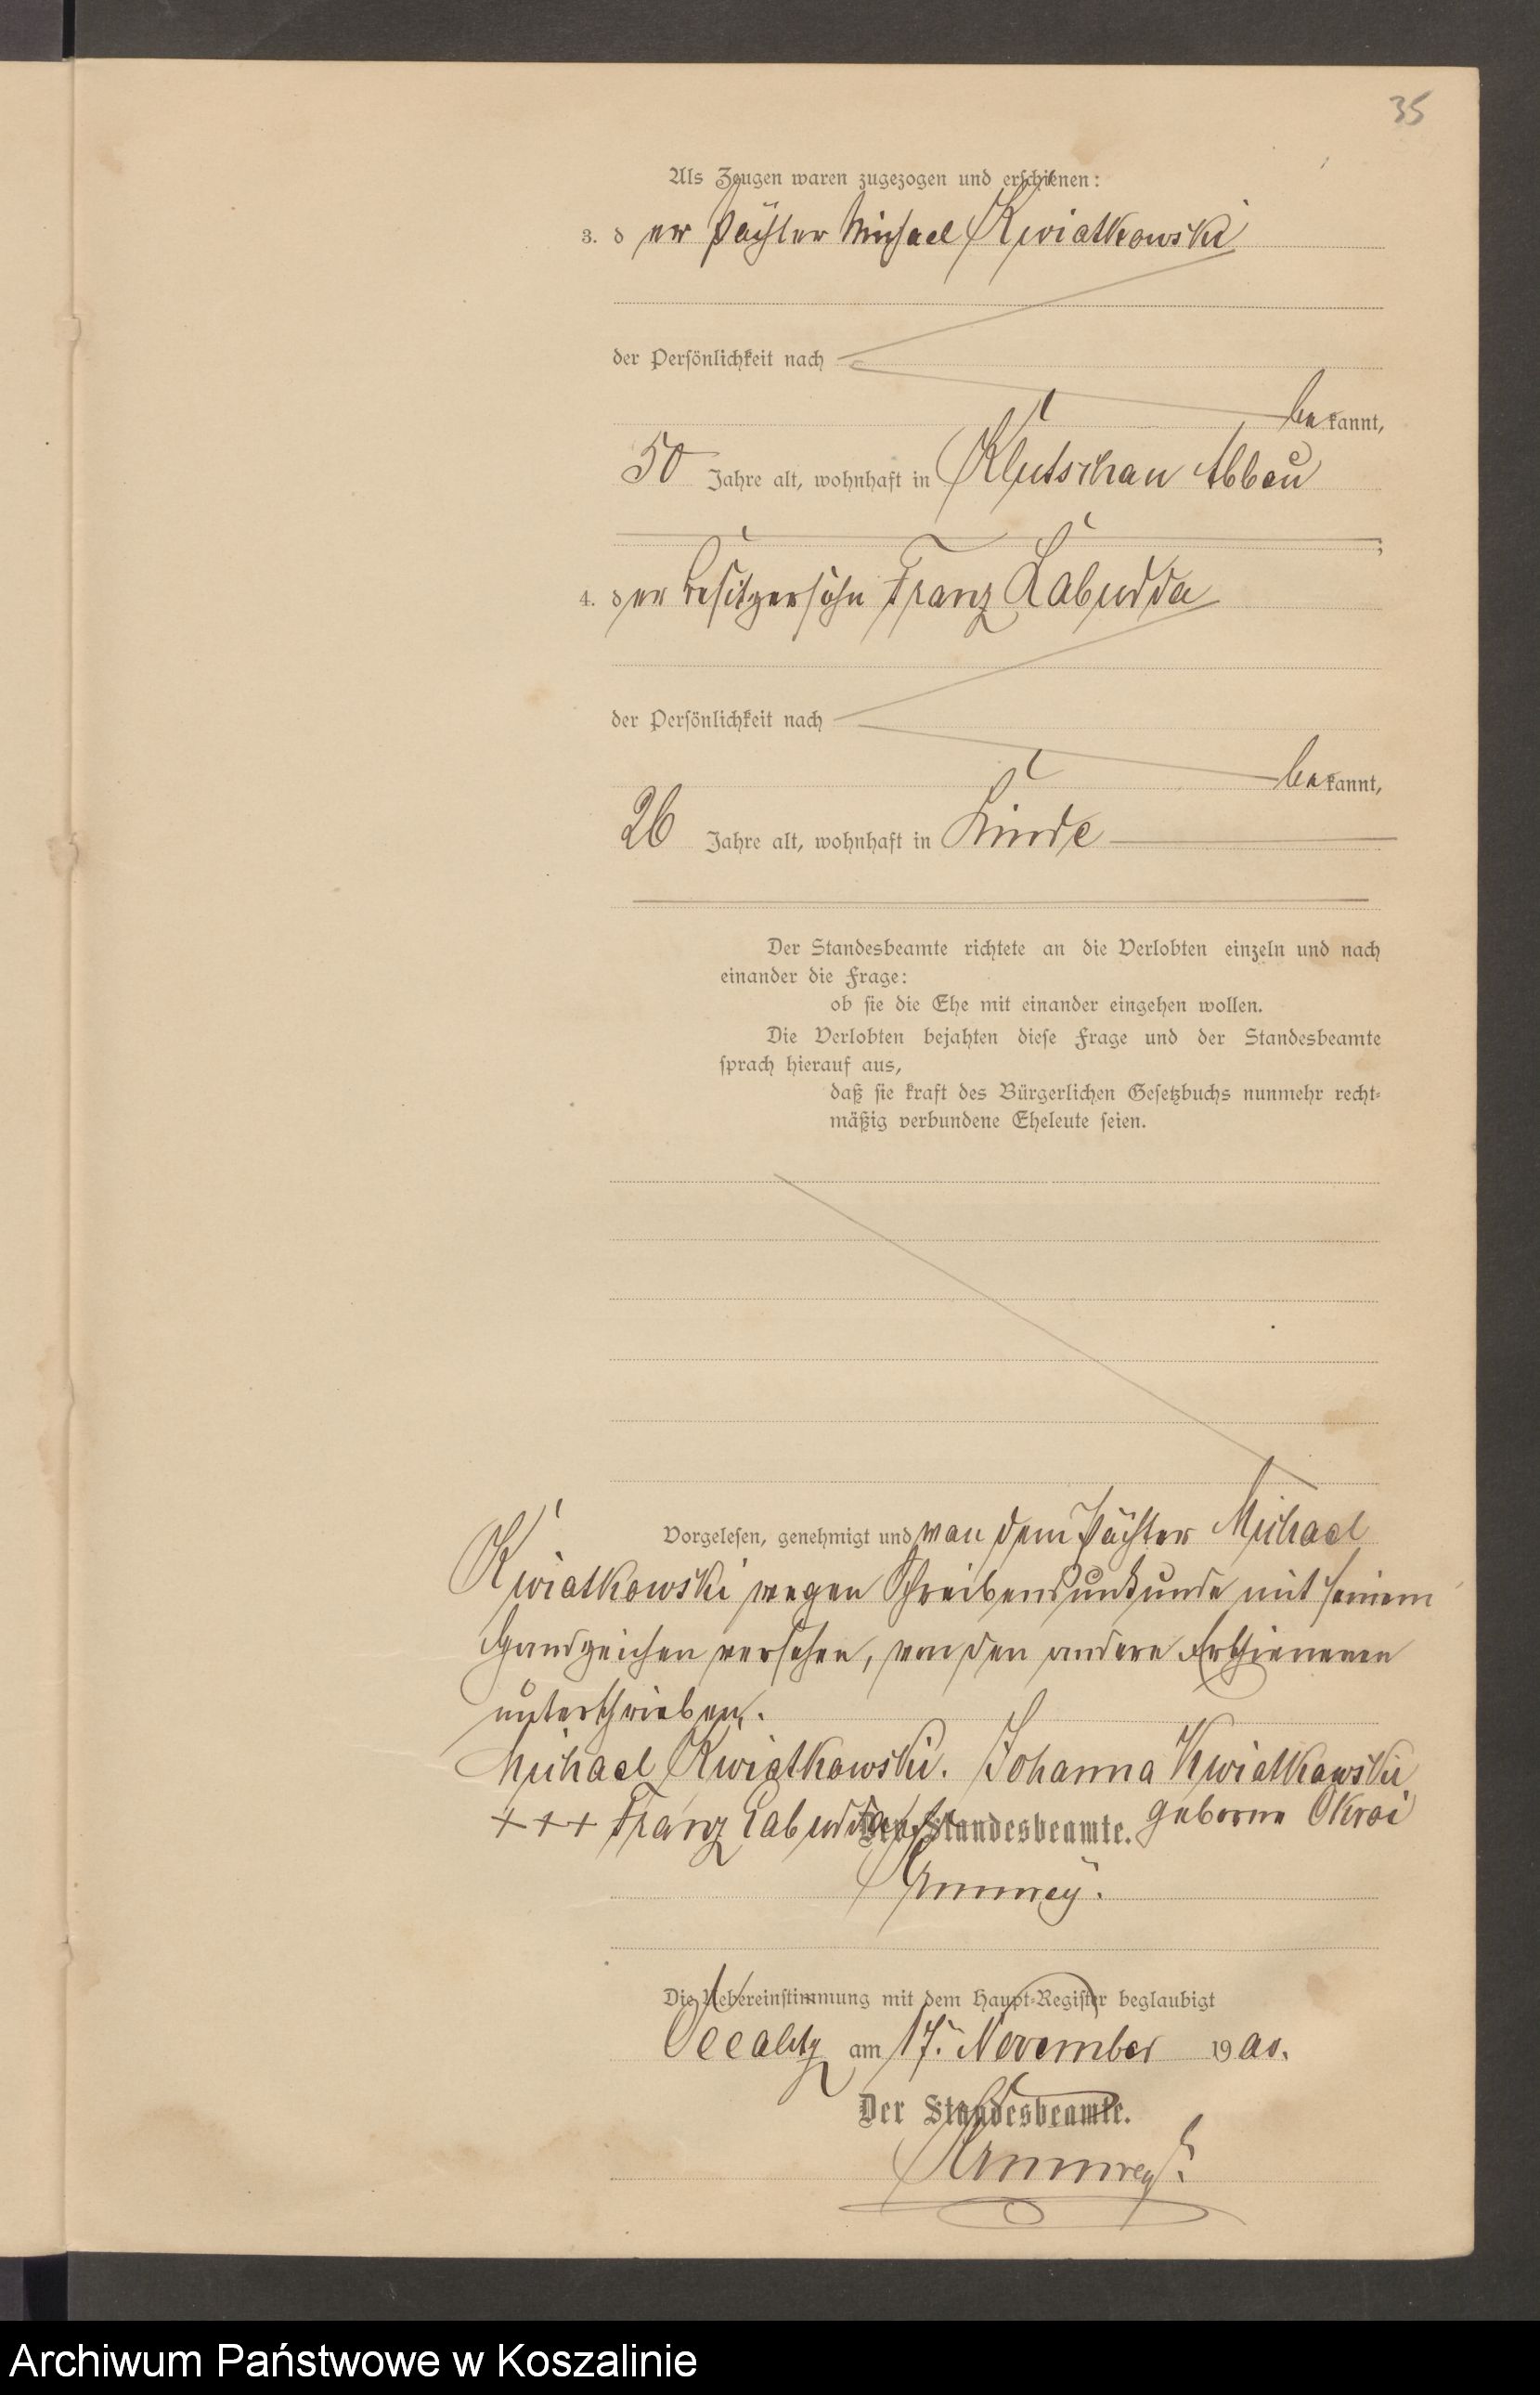 35
Als Zeugen waren zugezogen und erschienen:
3. der Pächter Michael Kwiatkowski
der Persönlichkeit nach
bekannt,
50 Jahre alt, wohnhaft in Klutschau Abbau
;
4. der Besitzersohn Franz Labudda
der Persönlichkeit nach
bekannt,
26 Jahre alt, wohnhaft in Linde
Der Standesbeamte richtete an die Verlobten einzeln und nach
einander die Frage:
ob sie die Ehe mit einander eingehen wollen.
Die Verlobten bejahten diese Frage und der Standesbeamte
sprach hierauf aus,
daß sie kraft des Bürgerlichen Gesetzbuchs nunmehr recht-
mäßig verbundene Eheleute seien.
Vorgelesen, genehmigt und von dem Pächter Michael
Kwiatkowski wegen Schreibensunkunde mit seinem
Handzeichen versehen, von den andere Erschienenen
unterschrieben.
Michael Kwiatkowski. Johanna Kwiatkowski
+++ Franz Labudda geborne Okroi
Der Standesbeamte.
Die Uebereinstimmung mit dem Haupt-Register beglaubigt
am 17. November 1900.
Der Standesbeamte.
Archiwum Państwowe w Koszalinie